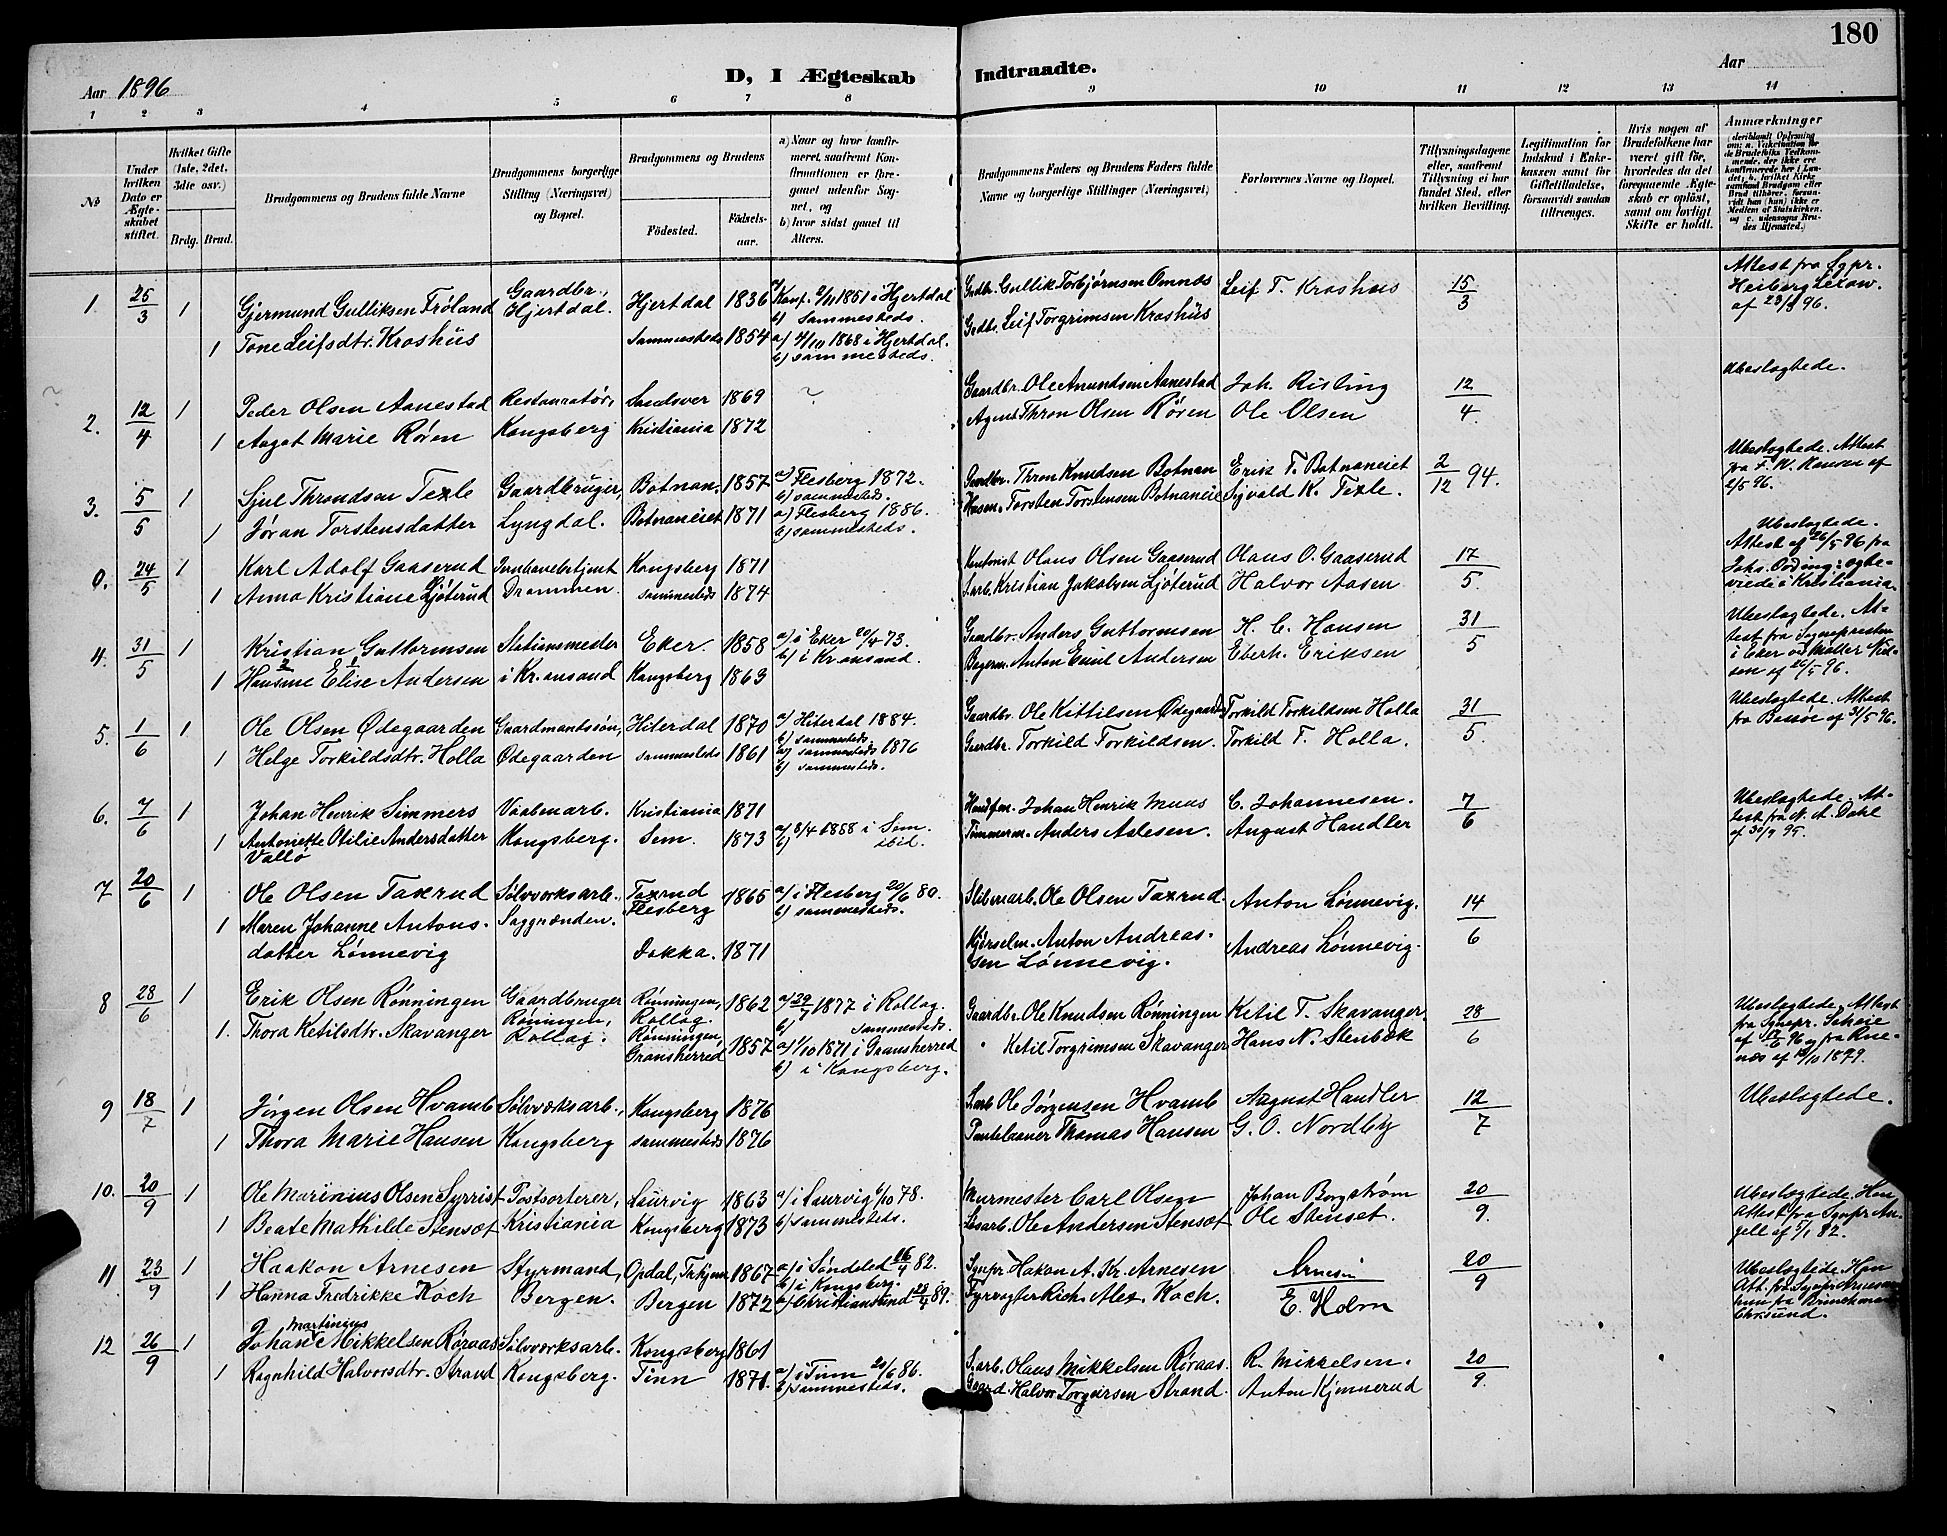 180
Aar 1896
D, I Ægteskab Indtraadte.
Aar
1 2 3 4 5 6 7 8 9 10 11 12 13 14
No
Under hvilken Dato er Ægteskabet stiftet.
Hvilket Gifte (1ste, 2det, 3die osv.)
Brdg. Brud.
Brudgommens og Brudens fulde Navne
Brudgommens borgerlige Stilling (Næringsvei) og Bopæl.
Brudgommens og Brudens
Fødested. Fødselsaar.
a) Naar og hvor konfirmeret, saafremt Konfirmationen er foregaaet udenfor Sognet, og
b) hvor sidst gaaet til Alters.
Brudgommens Faders og Brudens Faders fulde Navne og borgerlige Stillinger (Næringsvei)
Forlovernes Navne og Bopæl.
Tillysningsdagene eller, saafremt Tillysning ei har fundet Sted, efter hvilken Bevilling.
Legitimation for Indskud i Enkekassen samt for Giftetilladelse, forsaavidt saadan tiltrænges.
Hvis nogen af Brudefolkene har været gift før, hvorledes da det foregaaende Ægteskab er opløst, samt om lovligt Skifte er holdt.
Anmærkninger
1. 25/3 1 Gjermund Gulliksen Frøland Gaardbr., Hjertdal. Hjertdal 1836 a) Konf. 1851 i Hjertdal b) sammesteds. Grdbr. Gullik Torbjørnsen Omnes Leif T. Kroshus 15/3 Attest fra Sgpr. Heiberg
1 Tone Leifsdtr. Kroshus sammesteds 1854 a) 4/10 1868 i Hjertdal. b) sammesteds. Grdbr. Leif Torgrimsen Kroshus
Ubeslogtede.
2. 12/4 1 Peder Olsen Aanestad Restauratør, Sandsver 1869 ? Gaardbr. Ole Amundsen Aanestad Joh. Risting 12/4
1 Aagot Marie Røren Kongsberg Kristiania 1872 Agent Thron Olsen Røren Ole Olsen
3. 5/5 1 Sjul Throndsen Texle Gaardbruger, Botnan. 1857 a) Flesberg 1872. b) sammesteds. Gaardbr. Thron Knudsen Botnan Erik T. Botnaneiet 2/12 94. Ubeslogtede. Attest fra F. W. Hansen af 2/5 96.
1 Jøran Torstensdatter Lyngdal. Botnaneiet 1871 a) Flesberg 1886. b) sammesteds. Husm. Torsten Torstensen Botnaneie Sigvald K. Texle.
0. 24/5 1 Karl Adolf Gaaserud Drammen. Kongsberg 1871 Olaus Olsen Gaaserud Olaus O. Gaaserud 17/5. Ubeslogtede. Attest af 26/5 96 fra Johs. Ording: egteviede i Kristiania
1 Anna Kristiane Ljøterud sammesteds 1874 S. arb. Kristian Jakobsen Ljøterud Halvor Aasen
4. 31/5 1 Kristian Guttormsen Stationsmester Eker. 1858 a) i Eker 20/4 73. b) i Kr.ansand. Gaardbr. Anders Guttormsen H. C. Hansen 31/5 Ubeslogtede. Attest fra Sognepresten i Eker og Møller Nielsen af 26/5 96.
1 Hansine Elise Andersen i Kr.ansand Kongsberg 1863 Bagerm. Anton Emil Andersen Eberh. Eriksen
5. 1/6 1 Ole Olsen Ødegaarden Gaardmandssøn, Hiterdal 1870 a) Hiterdal 1884. b) sammesteds Gaardbr. Ole Kittilsen Ødegaard Torkild Torkildsen Holla 31/5. Ubeslogtede. Attest fra af 31/5 96.
1 Helge Torkildsdtr. Holla Ødegaarden sammesteds 1861 a) sammesteds 1876 b) sammesteds. Gaardbr. Torkild Torkildsen. Torkild T. Holla.
6. 7/6 1 Johan Henrik Simmers Vaabenarb. Kristiania 1871 Johan Henrik Muus C. Johannesen. 7/6 Ubeslogtede. Attest fra N. A. Dahl
1 Antoniette Otilie Andersdatter Vallø Kongsberg. Sem. 1873 a) 8/4 1858 i Sem. b) ibid. Timmerm. Anders Aslesen. August Handler
7 20/6 1 Ole Olsen Taxrud Sølvverksarb., Saggrænden. Taxrud Flesberg 1865 a) i Flesberg 20/6 80. b) sammesteds. Ole Olsen Taxrud Anton Lønnevig. 14/6
1 Maren Johanne Antonsdatter Lønnevig Dokka. 1871 Anton Andreassen Lønnevig. Andreas Lønnevig.
8 28/6 1 Erik Olsen Rønningen Gaardbruger Røningen, Rollag. Rønningen, Rollag. 1862 a) 29/7 1877 i Rollag. b) sammesteds. Gaardbr. Ole Knudsen Rønningen Ketil T. Skavanger. 28/6 Ubeslogtede. Attest fra Sgnpr.
1. Thora Ketilsdtr. Skavanger Rønningen, Gransherred 1857 a) 1/10 1871 i Gransherred b) i Kongsberg. " Ketil Torgrimsen Skavanger Hans N. Stenbæk
9 18/7 1 Jørgen Olsen Hvamb Sølvværksarb., Kongsberg 1876 S.arb. Ole Jørgensen Hvamb August Handler 12/7 Ubeslogtede.
1 Thora Marie Hansen Kongsberg sammesteds 1876 Pantelaaner Thomas Hansen G. O. Nordby
10. 20/9 1 Ole Marinius Olsen Syrrist Postsorterer, Laurvig 1863 a) i Laurvig 6/10 78. b) sammesteds. Murmester Carl Olsen Johan Borgstrøm 20/9. Ubeslogtede. Attest fra Sgnpr. Angell af 5/1 82.
1 Beate Mathilde Stensæt Kristiania Kongsberg 1873 Ole Andersen Stensæt Ole Stenset.
11 23/9 1 Haakon Arnesen Styrmand, Opdal, Trhjem 1867 a) i Søndeled 16/4 82. b) i Kongsberg. Sgnpr. Hakon A. Kr. Arnesen Arnesen 20/9 Ubeslogtede.
1 Hanna Fredrikke Koch Bergen. Bergen 1872 a) Christiansund 28/4 89. Fyrvogter Rich. Alex. Koch. E. Holm
12 26/9 1 Johan Martinius Mikkelsen Røraas Sølvværksarb. Kongsberg 1861 S. arb. Olaus Mikkelsen Røraas R. Mikkelsen. 20/9.
1 Ragnhild Halvorsdtr. Strand Kongsberg. Tinn 1871. a) i Tinn 20/6 86. b) sammesteds. Gaard. Halvor Torgeirsen Strand. Anton Kjennerud